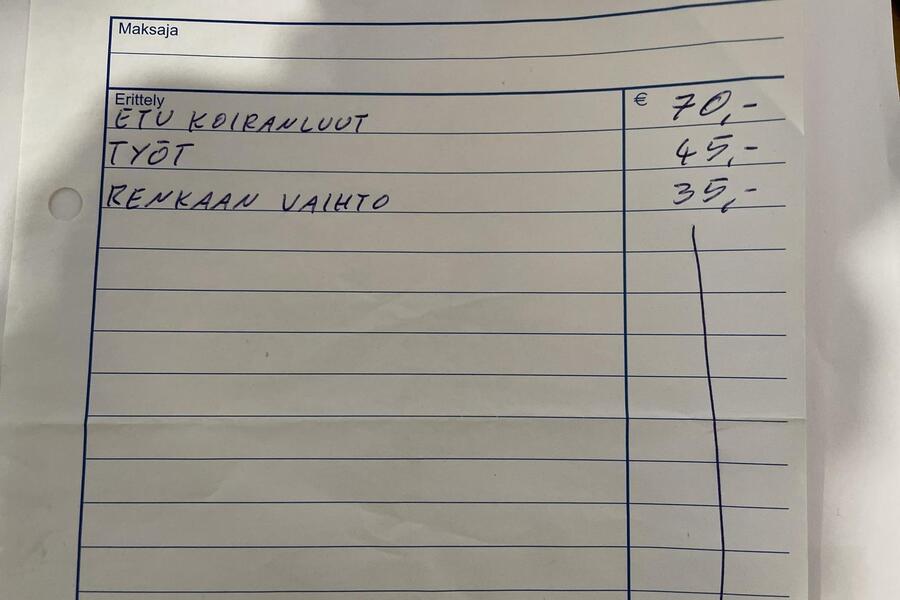 Maksaja
Erittely €
ETU KOIRANLUUT 70,-
TYÖT 45,-
RENKAAN VAIHTO 35,-